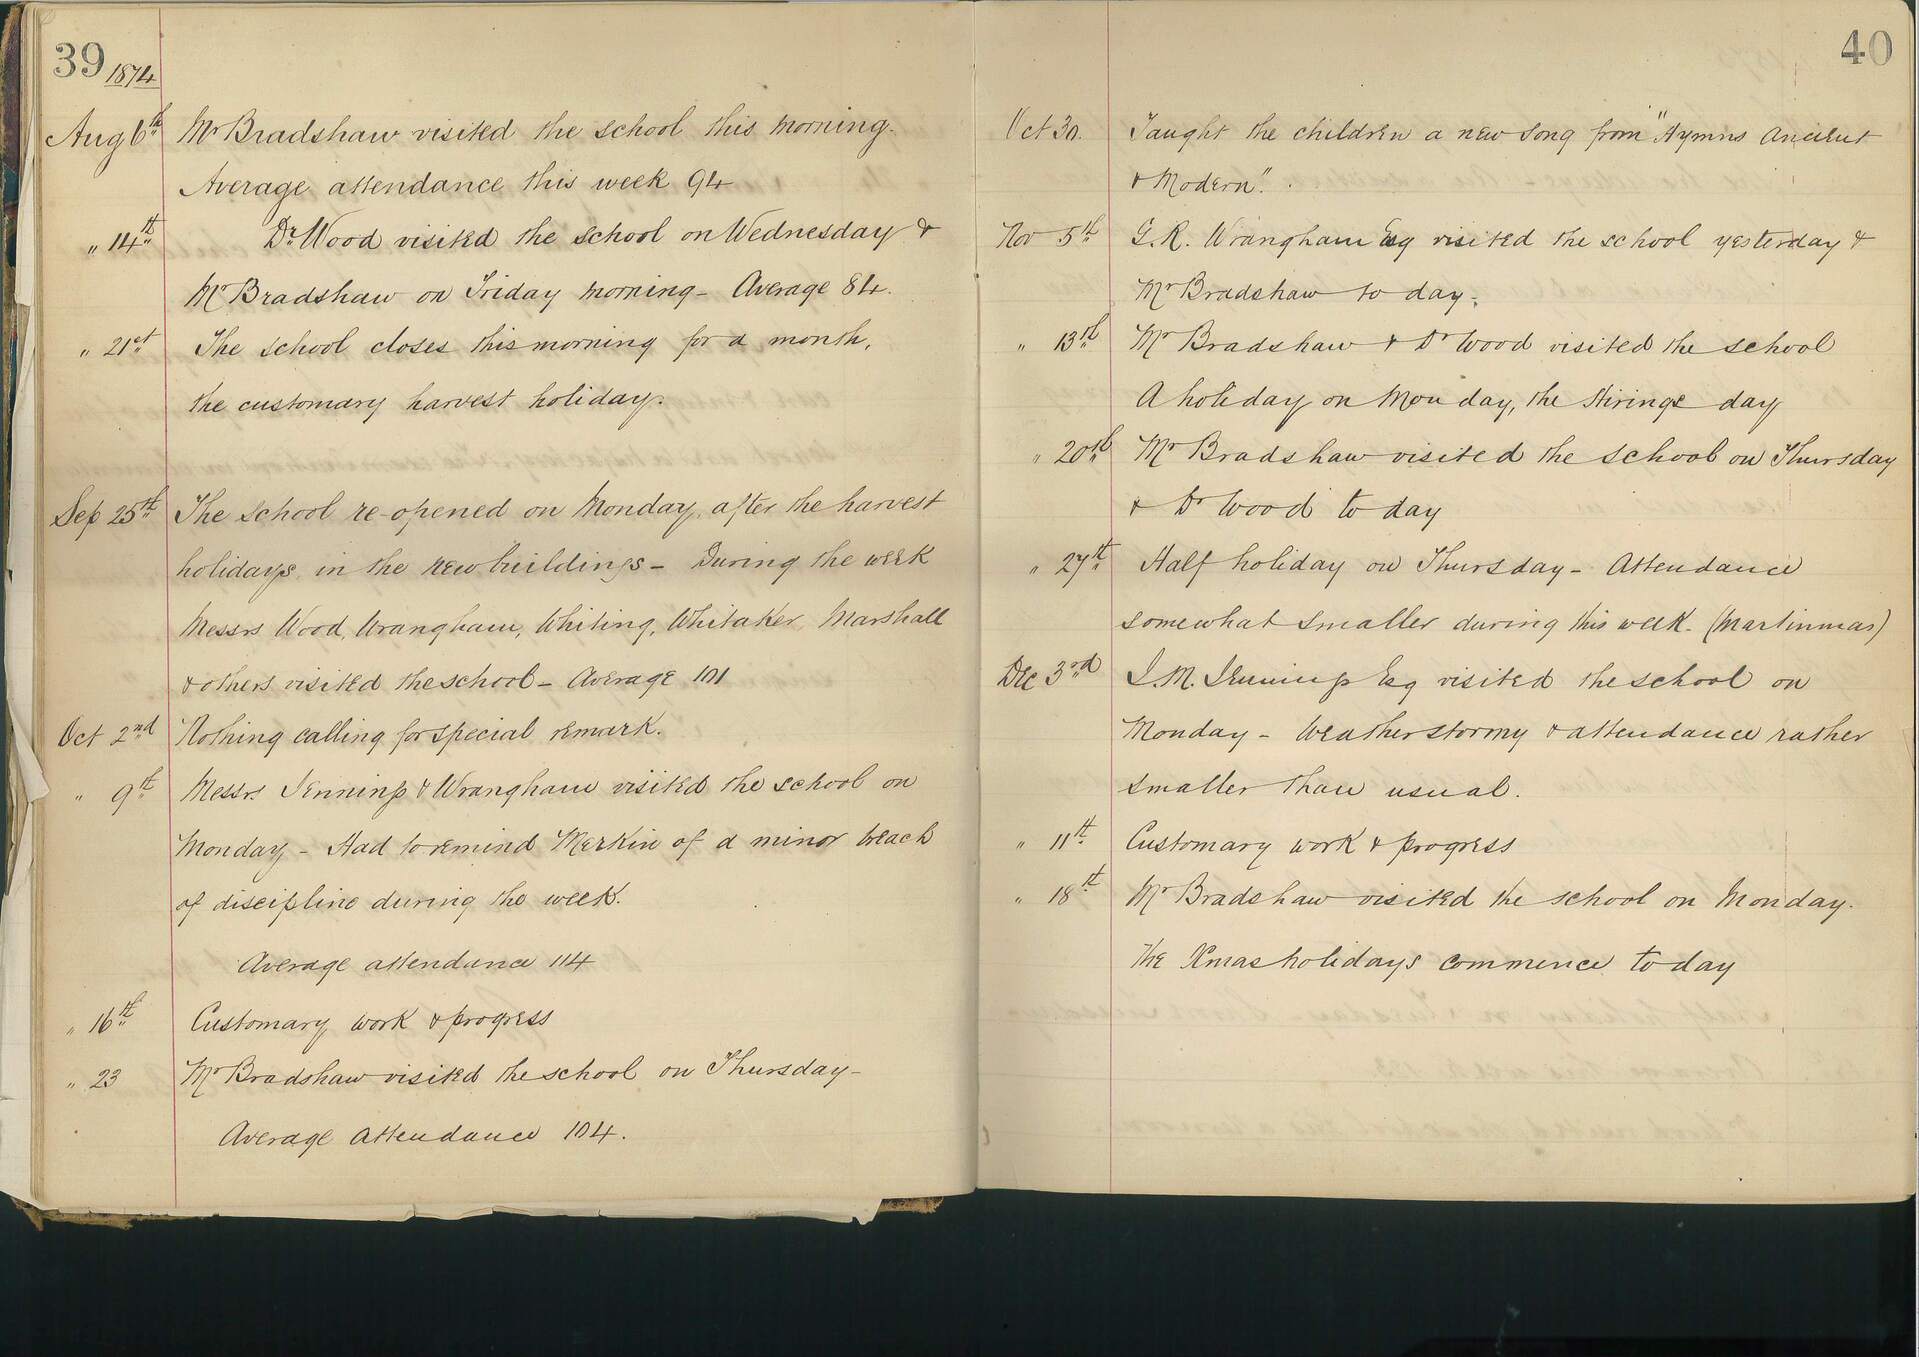 39 1874
Aug 6th Mr Bradshaw visited the school this morning.
Average attendance this week 94
" 14th Dr. Wood visited the school on Wednesday &
Mr Bradshaw on Friday morning – Average 84.
" 21st The school closes this morning for a month,
the customary harvest holiday.
Sep 25th The school re-opened on Monday, after the harvest
holidays, in the new buildings – During the week
Messrs Wood, Wrangham, Whiting, Whitaker, Marshall
& others visited the school – Average 101
Oct 2nd Nothing calling for special remark.
" 9th Messrs Jennings & Wrangham visited the school on
Monday – Had to remind Merkin of a minor breach
of discipline during the week.
Average attendance 114
" 16th Customary work & progress
" 23 Mr Bradshaw visited the school on Thursday –
Average attendance 104.
40
Oct 30. Taught the children a new song from "Hymns Ancient
& Modern".
Nov 5th G.R. Wrangham Esq visited the school yesterday &
Mr Bradshaw to day.
" 13th Mr Bradshaw & Dr Wood visited the school
A holiday on Monday, the Hirings day
" 20th Mr Bradshaw visited the school on Thursday
& Dr Wood to day
" 27th Half holiday on Thursday – Attendance
somewhat smaller during this week. (Martinmas)
Dec 3rd J.M. Jennings Esq visited the school on
Monday – Weather stormy & attendance rather
smaller than usual.
" 11th Customary work & progress
" 18th Mr Bradshaw visited the school on Monday.
The Xmas holidays commence to day